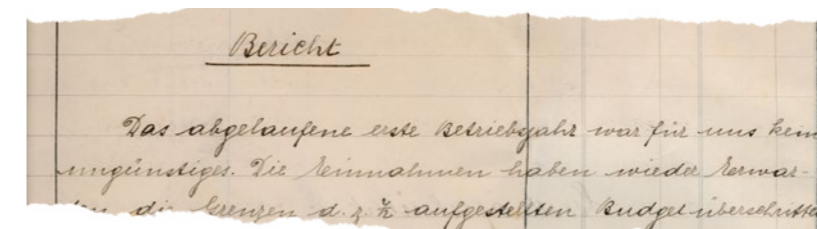 Bericht
Das abgelaufene erste Betriebsjahr war für uns kein
ungünstiges. Die Einnahmen haben wieder Erwar-
die Grenzen d. z. Z. aufgestellten Budget überschritte